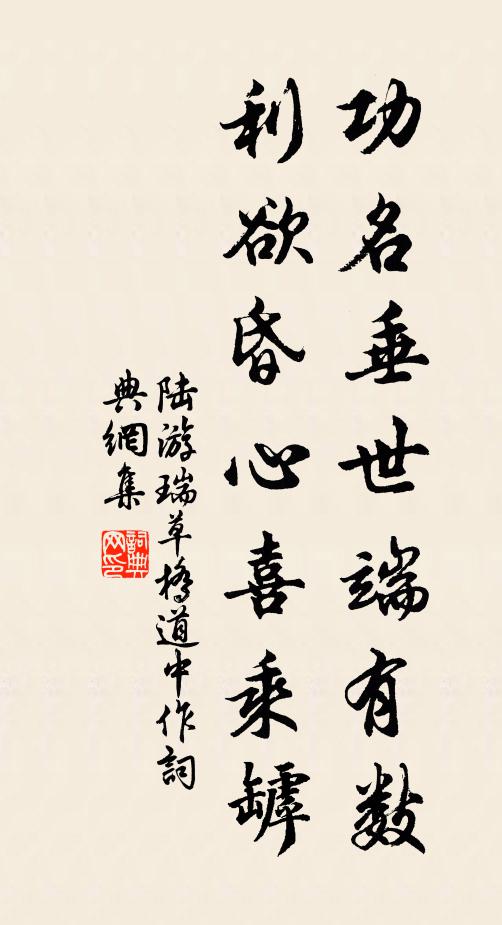 功名垂世端有数
利欲昏心喜乘罅
陆游瑞草橋道中作詞
典網集
詞典网印